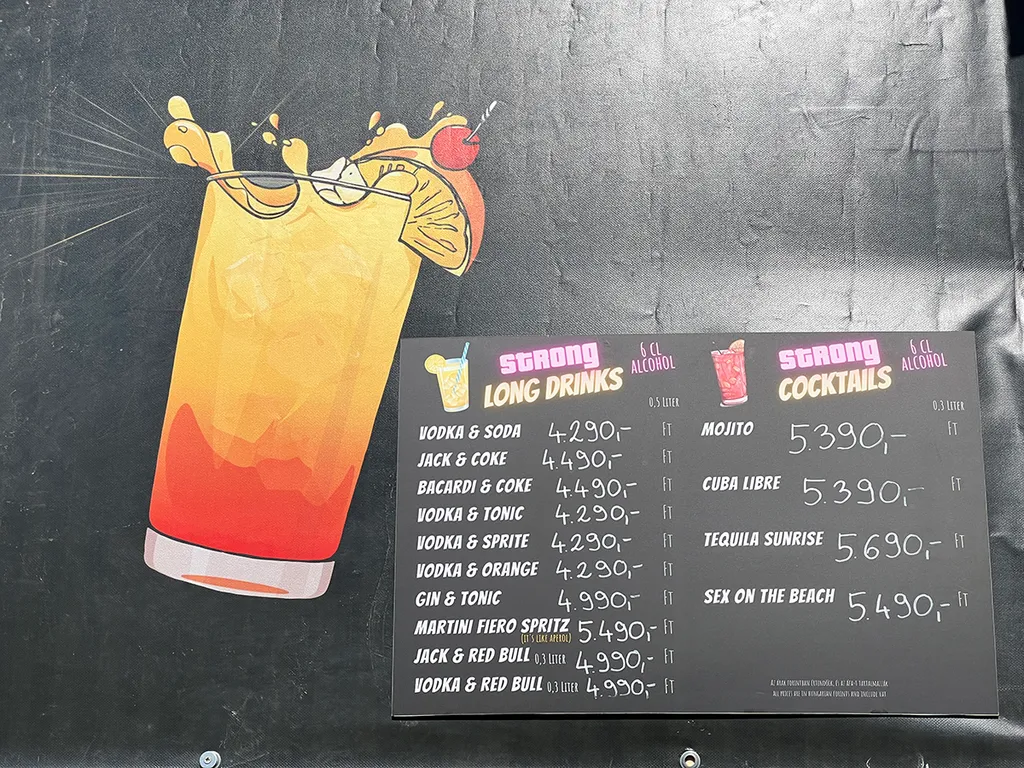 STRONG
LONG DRINKS
6 CL
ALCOHOL
0,5 LITER
VODKA & SODA 4.290,- FT
JACK & COKE 4.490,- FT
BACARDI & COKE 4.490,- FT
VODKA & TONIC 4.290,- FT
VODKA & SPRITE 4.290,- FT
VODKA & ORANGE 4.290,- FT
GIN & TONIC 4.990,- FT
MARTINI FIERO SPRITZ 5.490,- FT
(IT'S LIKE APEROL)
JACK & RED BULL 0,3 LITER 4.990,- FT
VODKA & RED BULL 0,3 LITER 4.990,- FT
STRONG
COCKTAILS
6 CL
ALCOHOL
0,3 LITER
MOJITO 5.390,- FT
CUBA LIBRE 5.390,- FT
TEQUILA SUNRISE 5.690,- FT
SEX ON THE BEACH 5.490,- FT
AZ ÁRAK FORINTBAN ÉRTENDŐEK, ÉS AZ ÁFA-T TARTALMAZZÁK
ALL PRICES ARE IN HUNGARIAN FORINTS AND INCLUDE VAT